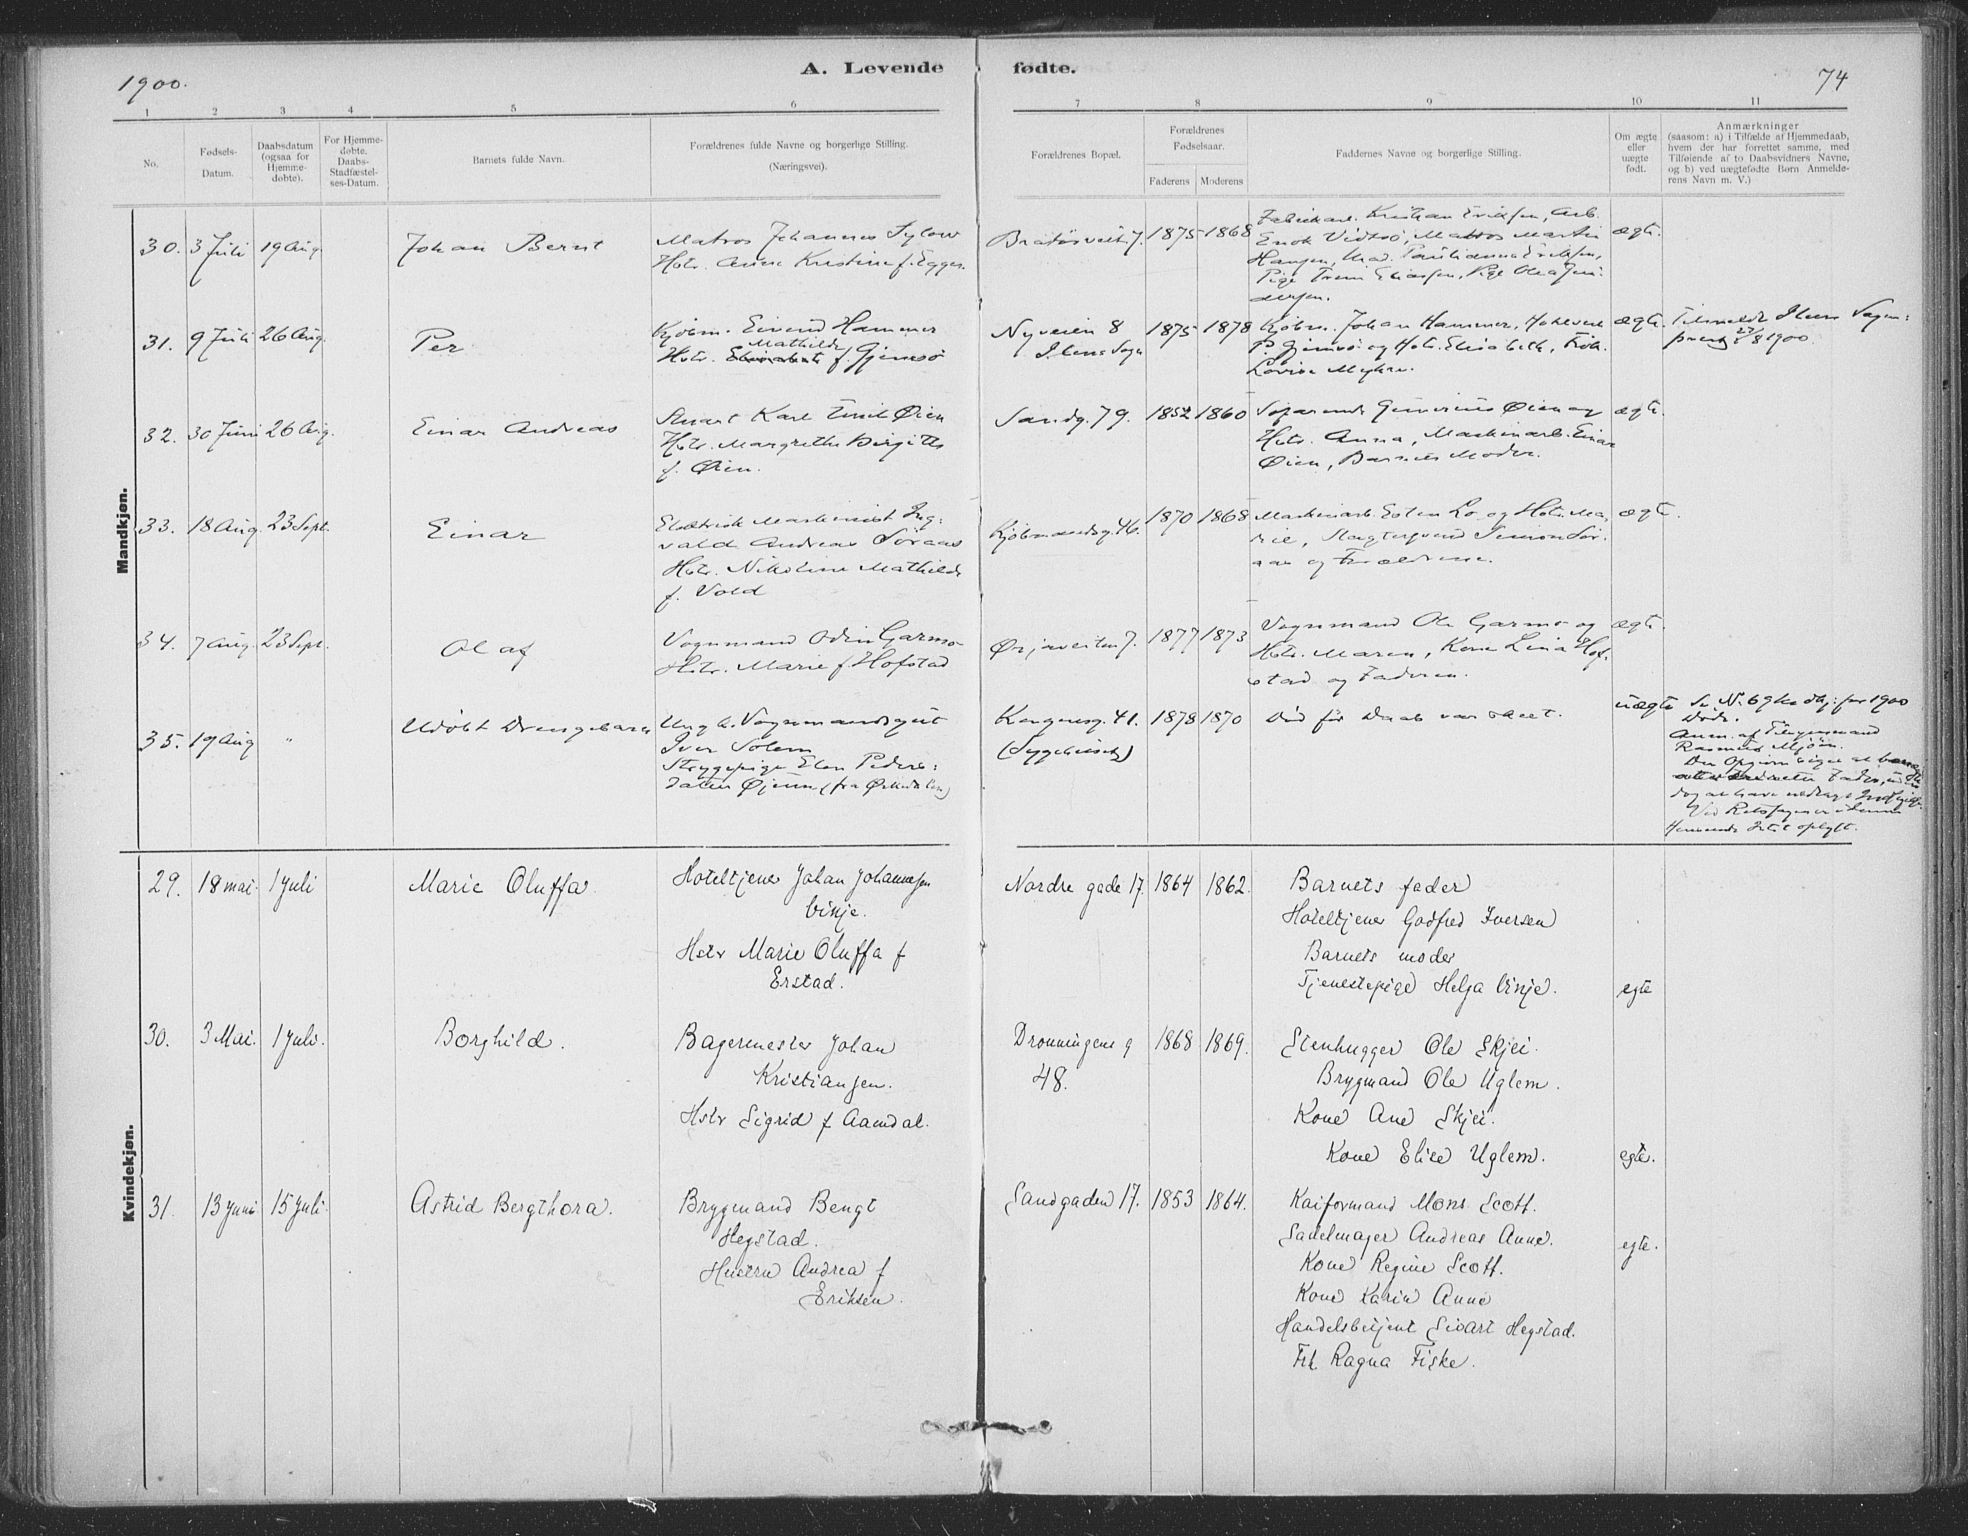 1900.
A. Levende fødte.
74
1 2 3 4 5 6 7 8 9 10 11
No.
Fødsels-
Datum.
Daabsdatum
(ogsaa for
Hjemme-
døbte).
For Hjemme-
døbte.
Daabs-
Stadfæstel-
ses-Datum.
Barnets fulde Navn.
Forældrenes fulde Navne og borgerlige Stilling.
(Næringsvei).
Forældrenes Bopæl.
Forældrenes
Fødselsaar.
Faderens Moderens
Faddernes Navne og borgerlige Stilling.
Om ægte
eller
uægte
født.
Anmærkninger
(saasom: a) i Tilfælde af Hjemmedaab,
hvem der har forrettet samme, med
Tilføiende af to Daabsvidners Navne,
og b) ved uægtefødte Børn Anmelde-
rens Navn m. V.)
Mandkjøn.
30. 3 Juli 19 Aug
Johan Bernt
Matros Johannes Sylow
Hstr. Anne Kristine f. Egge
Bratørveit. 7.
1875 1868
Fabrikarb. Kristian Eriksen, Arb.
Enok Vidtsø, Matros Martin
Hansen, Mad. Eriksen,
Pige Eliassen, Pige Olea
dersen.
ægte.
31. 9 Juli 26 Aug.
Per
Kjøbm. Eivind Hammer
Mathilde
Hstr. Elisabeth f. Gjemsø
Nyveien 8
Ilens Sogn
1875 1878
Kjøbm. Johan Hammer,
P. Gjemsø og Hstr. Elisabeth, Frøk.
Lovise Myhre.
ægte.
Tilmeldt Ilens Sogne-
præst 27/8 1900.
32. 30 Juni 26 Aug.
Einar Andreas
Stuert Karl Emil Øien
Hstr. Margrethe Birgitte
f. Øien.
Sandg. 79.
1852 1860
Øien og
Hstr. Anna, Maskinarb. Einar
Øien, Barnets Moder.
ægte.
33. 18 Aug. 23 Sept.
Einar
Elektrisk Maskinist Ing-
vald Andreas Søraas
Hstr. Nikoline Mathilde
f. Vold
Kjøbmandsg. 46.
1870 1868
Maskinarb. Esten Lo og Hstr. Ma-
rie, Slagtersvend Simon Sør-
aas og Forældrene.
ægte.
34. 7 Aug. 23 Sept.
Olaf
Vognmand Odin Garmo
Hstr. Marie f. Hofstad
Ørjaveiten 7.
1877 1873
Vognmand Ole Garmo og
Hstr. Maren, Kone Lina Hof-
stad og Faderen.
ægte.
35. 19 Aug "
Udøbt Drengebarn
Ungk. Vognmandsgut
Iver Solem
Strygepige Elen Peders-
datter Øjum (fra Ørkedalen)
Kongensg. 41.
(Sygehuset)
1878 1870
Død før Daab var skeet.
uægte
Se No 69 for 1900
Døde.
Anm. af
Rasmus Mjøen.
Hemsende Intet oplyst.
Kvindekjøn.
29. 18 mai. 1 juli
Marie Oluffa.
Hoteltjener Johan Johannesen
Vinje.
Hstr Marie Oluffa f
Erstad.
Nordre gade 17.
1864 1862.
Barnets fader
Hoteltjener Godfred Iversen
Barnets moder
Tjenestepige Helga Vinje.
egte
30. 3 Mai. 1 juli.
Borghild.
Bagermester Johan
Kristiansen.
Hstr Sigrid f Aamdal.
Dronningens g
48.
1868 1869.
Stenhugger Ole Skjei.
Brygmand Ole Uglem.
Kone Ane Skjei.
Kone Elise Uglem.
egte.
31. 13 juni 15 juli.
Astrid Bergthora.
Brygmand Bengt
Hegstad.
Hustru Andrea f
Eriksen.
Sandgaden 17.
1853 1864.
Kaiformand Mons Scott.
Sadelmager Andreas Anne.
Kone Regine Scott.
Kone Karin Anne
Handelsbetjent Sivart Hegstad.
Frk. Ragna Fiske.
egte.